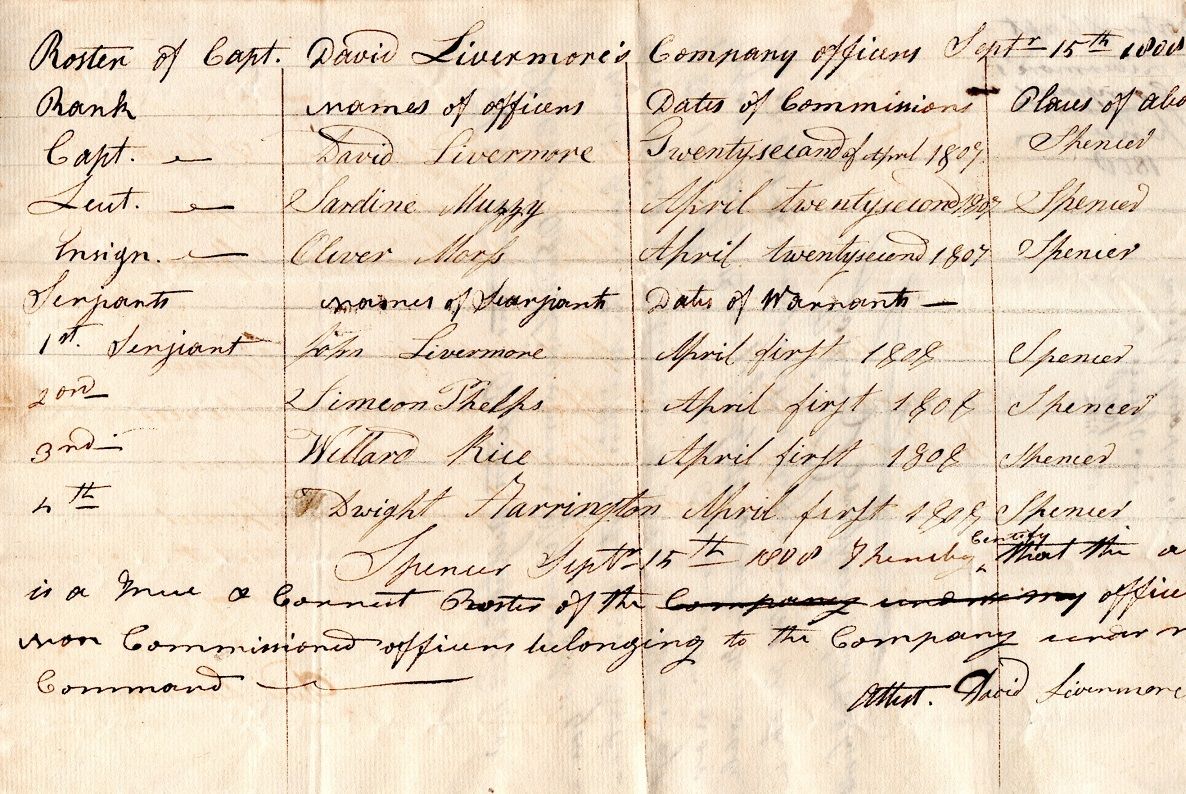 Roster of Capt. David Livermore's Company officers Septr 15th 1808
Rank names of officers Dates of Commissions Places of abo
Capt. David Livermore Twentysecond of April 1807 Spencer
Leut. Jardine Muzzy April twentysecond 1807 Spencer
Insign. Oliver Morss April twentysecond 1807 Spencer
Serjiants names of Searjiants Dates of Warrants —
1st. Serjiant John Livermore April first 1808 Spencer
2ond Simeon Phelps April first 1808 Spencer
3rd Willard Rice April first 1808 Spencer
4th Dwight Harrington April first 1808 Spencer
Spencer Septr 15th 1808 I hereby Certify that the a
is a True & Correct Roster of the Company under my office
non Commissioned officers belonging to the Company under m
Command
Attest. David Livermore